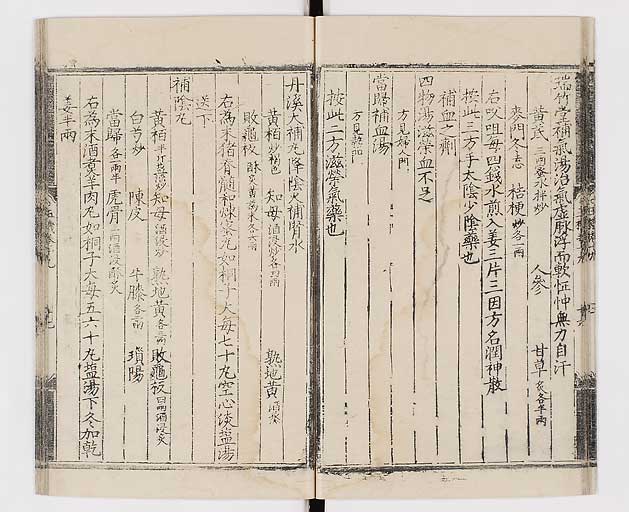 瑞竹堂補氣湯治氣虛脉浮而軟怔忡無力自汗
黃芪三両蜜水拌炒 人參 甘草炙各半両
麥門冬志 桔梗炒各一両
右㕮咀每四錢水煎入姜三片三因方名潤神散
按此三方手太陰少陰藥也
補血之劑
四物湯滋榮血不足
方見婦人門
當歸補血湯
方見
按此二方滋營氣藥也
丹溪大補丸降陰火補腎水
黃栢炒褐色 知母酒浸炒各四両 熟地黃酒蒸
敗龜板酥炙黃為末各六両
右為末猪脊髓和煉蜜丸如桐子大每七十丸空心淡盐湯
送下
補陰丸
黃栢半斤盐酒炒 知母酒浸炒 熟地黃各三両 敗龜板四両酒浸炙
白芍炒 陳皮 牛膝各二両 瑣陽
當歸各一両半 虎骨一両酒浸酥炙
右為末酒煮羊肉丸如桐子大每五六十丸盐湯下冬加乾
姜半両